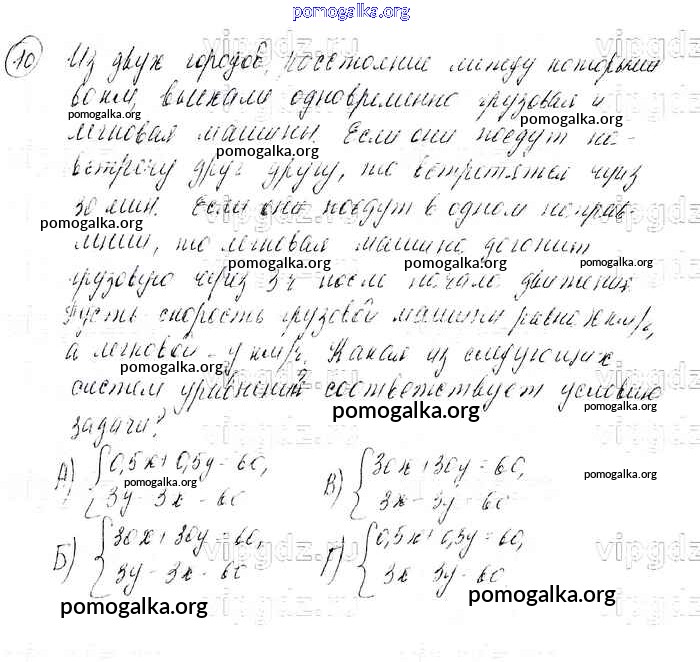 pomogalka.org
10 Из двух городов, расстояние между которыми
60 км, выехали одновременно грузовая и
pomogalka.org pomogalka.org
легковая машины. Если они поедут на-
pomogalka.org
встречу друг другу, то встретятся через
30 мин. Если они поедут в одном направ-
pomogalka.org
лении, то легковая машина догонит
pomogalka.org pomogalka.org pomogalka.org
грузовую через 3 ч после начала движения.
Пусть скорость грузовой машины равна x км/ч,
а легковой - y км/ч. Какая из следующих
pomogalka.org
систем уравнений соответствует условию
pomogalka.org pomogalka.org
задачи?
А) {0,5x + 0,5y = 60,
3y - 3x = 60
В) {30x + 30y = 60,
3x - 3y = 60
pomogalka.org pomogalka.org
Б) {30x + 30y = 60,
3y - 3x = 60
Г) {0,5x + 0,5y = 60,
3x - 3y = 60
pomogalka.org pomogalka.org